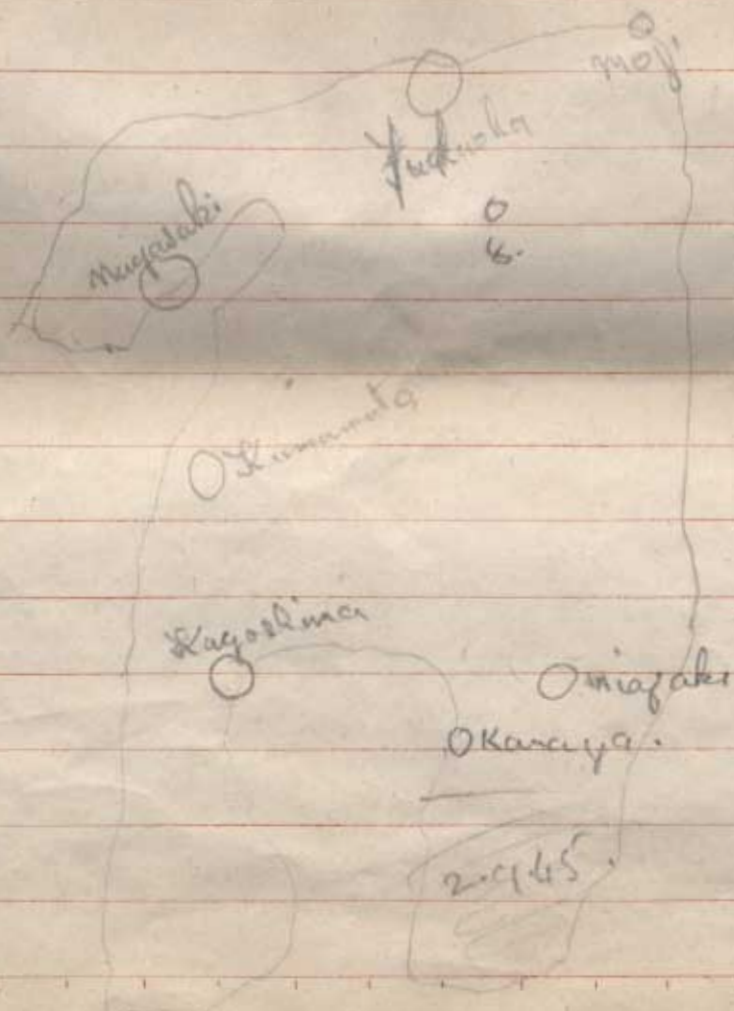 Moji
Fukuoka
Nagasaki
Kumamoto
Kagoshima
Omiazaki
OKanaya.
2.9.45.